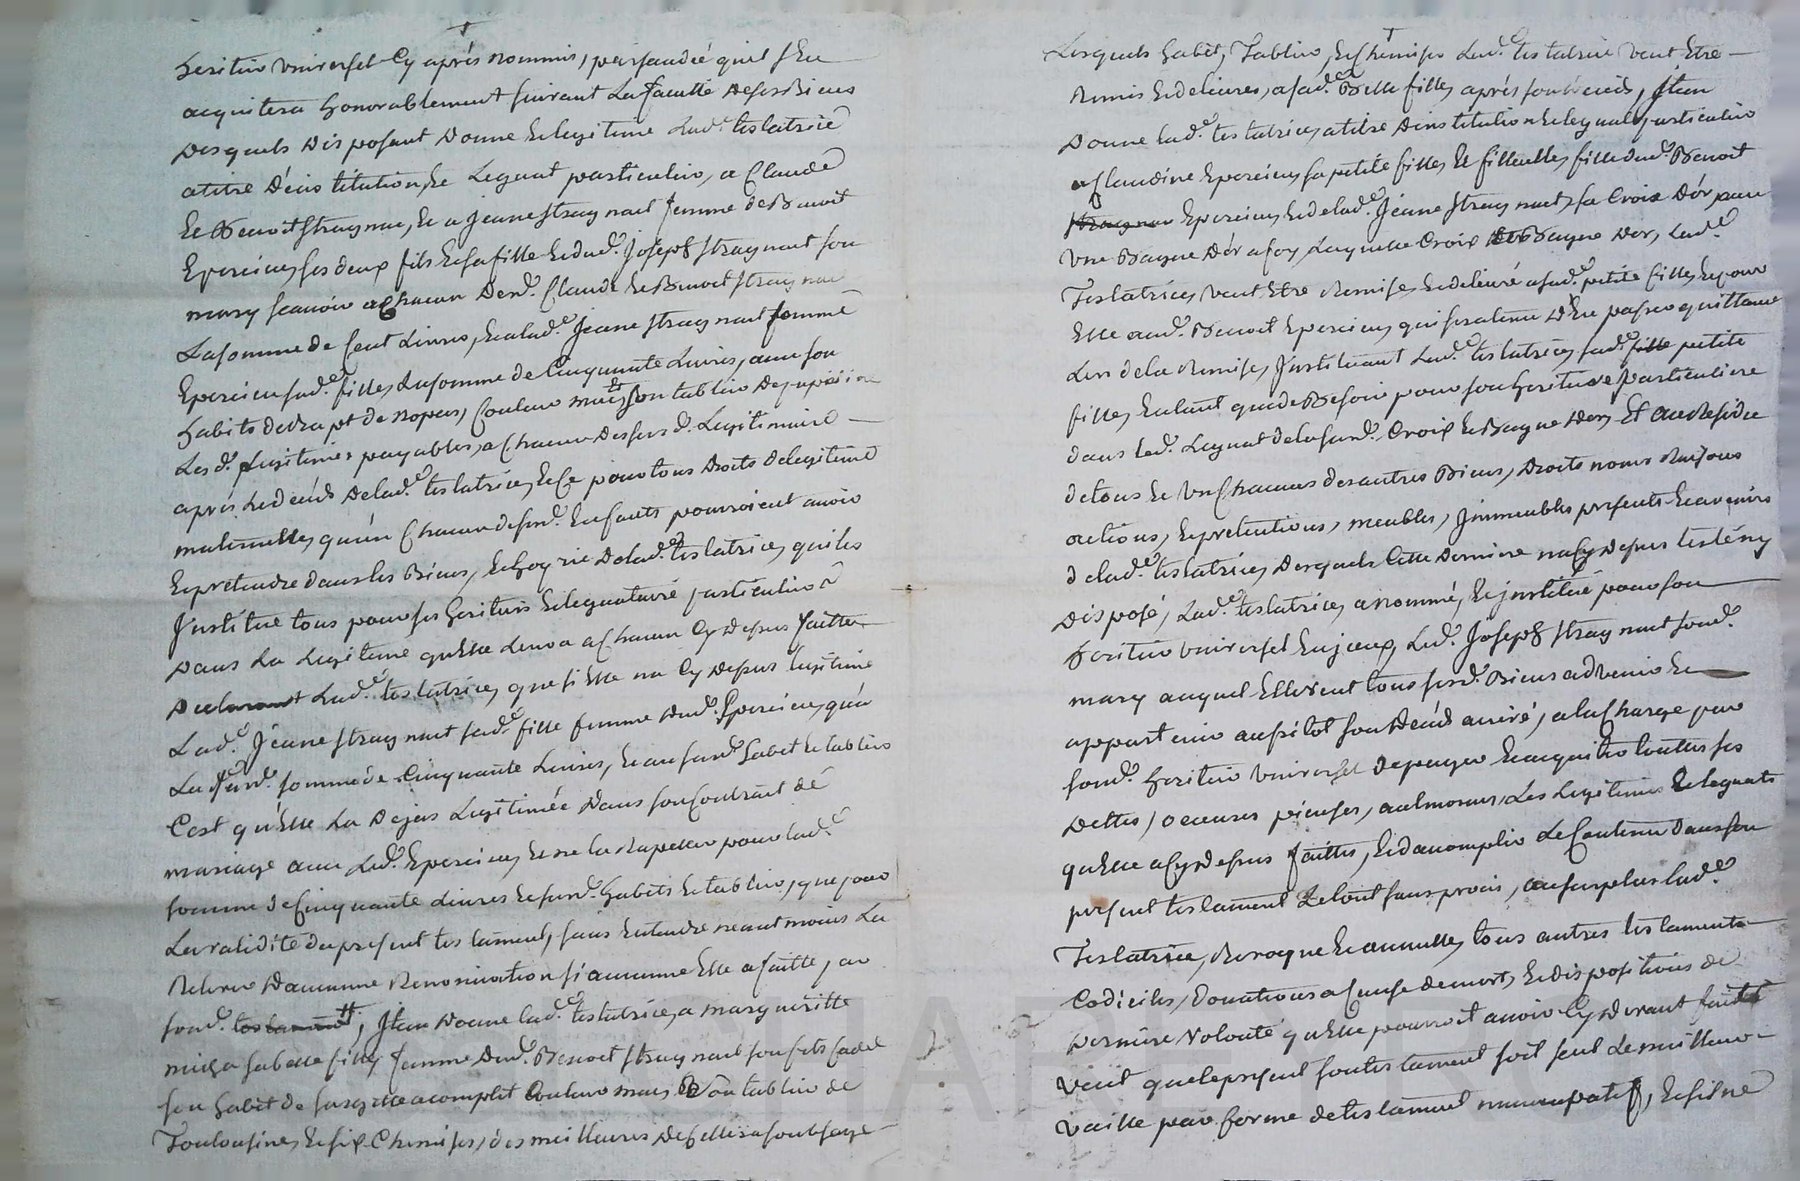 heritier universel Cy après nommé, persuadée quil s'en
acquitera honorablement suivant La faculté de ses Biens
Desquels Disposant Donne Et legitime Lad.e testatrice
a titre D'institution, Et Leguat particulier, a Claude
Et Benoit Straynat, Et a jeanne straynat femme de Benoit
Epercieu, ses deux fils Et sa fille Et dud. Joseph Straynat son
mary scavoir a Chacun Desd. Claude Et Benoit straynat
La somme de Cent Livres, Et a lad.e Jeanne straynat femme
Epercieu sad.e fille, La somme de Cinquante Livres, avec son
habits de drapt de nopces, Couleur son tablier De
Lesd. Legitimes payables, a Chacun Desses d. Legitimaire
après Le deués De lad.e testatrice, Et Ce pour tous Droits de legitime
maternelle, qu'un Chacun de sesd. Enfants pourroient avoir
Et pretendre dans les Biens, Et hoyrie De lad.e testatrice, qui les
Jnstitue tous pour ses heritiers Et leguataire particulier
Dans La Legitime qu'Elle Leur a a Chacun Cy Depus faitte
Declarant Lad.e testatrice, que si Elle na Cy Depus legitimé
Lad.e Jeanne straynat sad.e fille femme dud. Epercieu, qu'a
La susd. somme de Cinquante Livres, Et au susd. habit Et tablier
C'est qu'Elle La Dejas Legitimée Dans son Contract de
mariage avec Led. Epercieu, Et ne la Rapeller pour lad.e
somme de Cinquante Livres Et susd. habits Et tablier, que pour
La validité du present testament, sans Entendre neantmoins La
Relever Daucunne Renonciation si aucunne Elle a faitte, en
son d. testament, Jtem Donne lad.e testatrice, a marguerite
sa belle fille, femme dud. Benoit straynat son fils Cadet
son habit de complet Couleur Et son tablier de
Toulousine, Et six Chemises, des meilleures De Celles a son usage
Lesquels habit, Tablier, Et Chemises Lad.e testatrice veut Etre
Remis Et delivrés, a sad.e Belle fille, après son deués, Jtem
Donne lad.e testatrice, a titre Dinstitution Et leguat particulier
a Claudine Epercieu, sa petite fille, Et filleulle, fille dud. Benoit
Epercieu, Et de lad.e Jeanne straynat, sa Croix D'ór, avec
une Bague Dór a foy, Laquelle Croix Et Bague Dor, Lad.e
Testatrice, veut Etre Remise, Et delivré a sad.e petite fille, Et pour
Elle aud. Benoit Epercieu, qui sera tenu D'En passer quittance
Lors de la Remise, Jnstituant Lad.e testatrice, sad.e petite
fille, Entant que de Besoin pour son heritiere particuliere
dans led. Leguat de la susd. Croix Et Bague Dor, Et au Residu
de tous Et Un Chacuns des autres Biens, Droits noms Raisons
actions, Et pretentions, meubles, Jmmeubles presents Et avenirs
de lad.e testatrice, Desquels Cette Derniere na Cy Depus testé ny
Disposé, Lad.e testatrice, a nommé, Et institué pour son
heritier universel Led. Joseph straynat sond.
mary auquel Elle veut tous sesd. Biens advenir Et
appartenir aussitôt son deués arrivé, a la Charge par
sond. heritier universel De payer Et acquitter touttes ses
Dettes, oeuvres pieuses, aulmones, Les Legitimes Et leguats
qu'Elle a Cy Depus faittes, Et daccomplir Le Contenu Dans son
present testament Le tout sans procès, au surplus lad.e
Testatrice, Revoque Et annulle, tous autres testaments
Codiciles, Donations a Cause de mort, Et dispositions de
Derniere volonté qu'Elle pourroit avoir Cy Devant faittes
Veut que le present son testament soit seul Le meilleur
Vaille par forme de testament nuncupatif, Et si ne